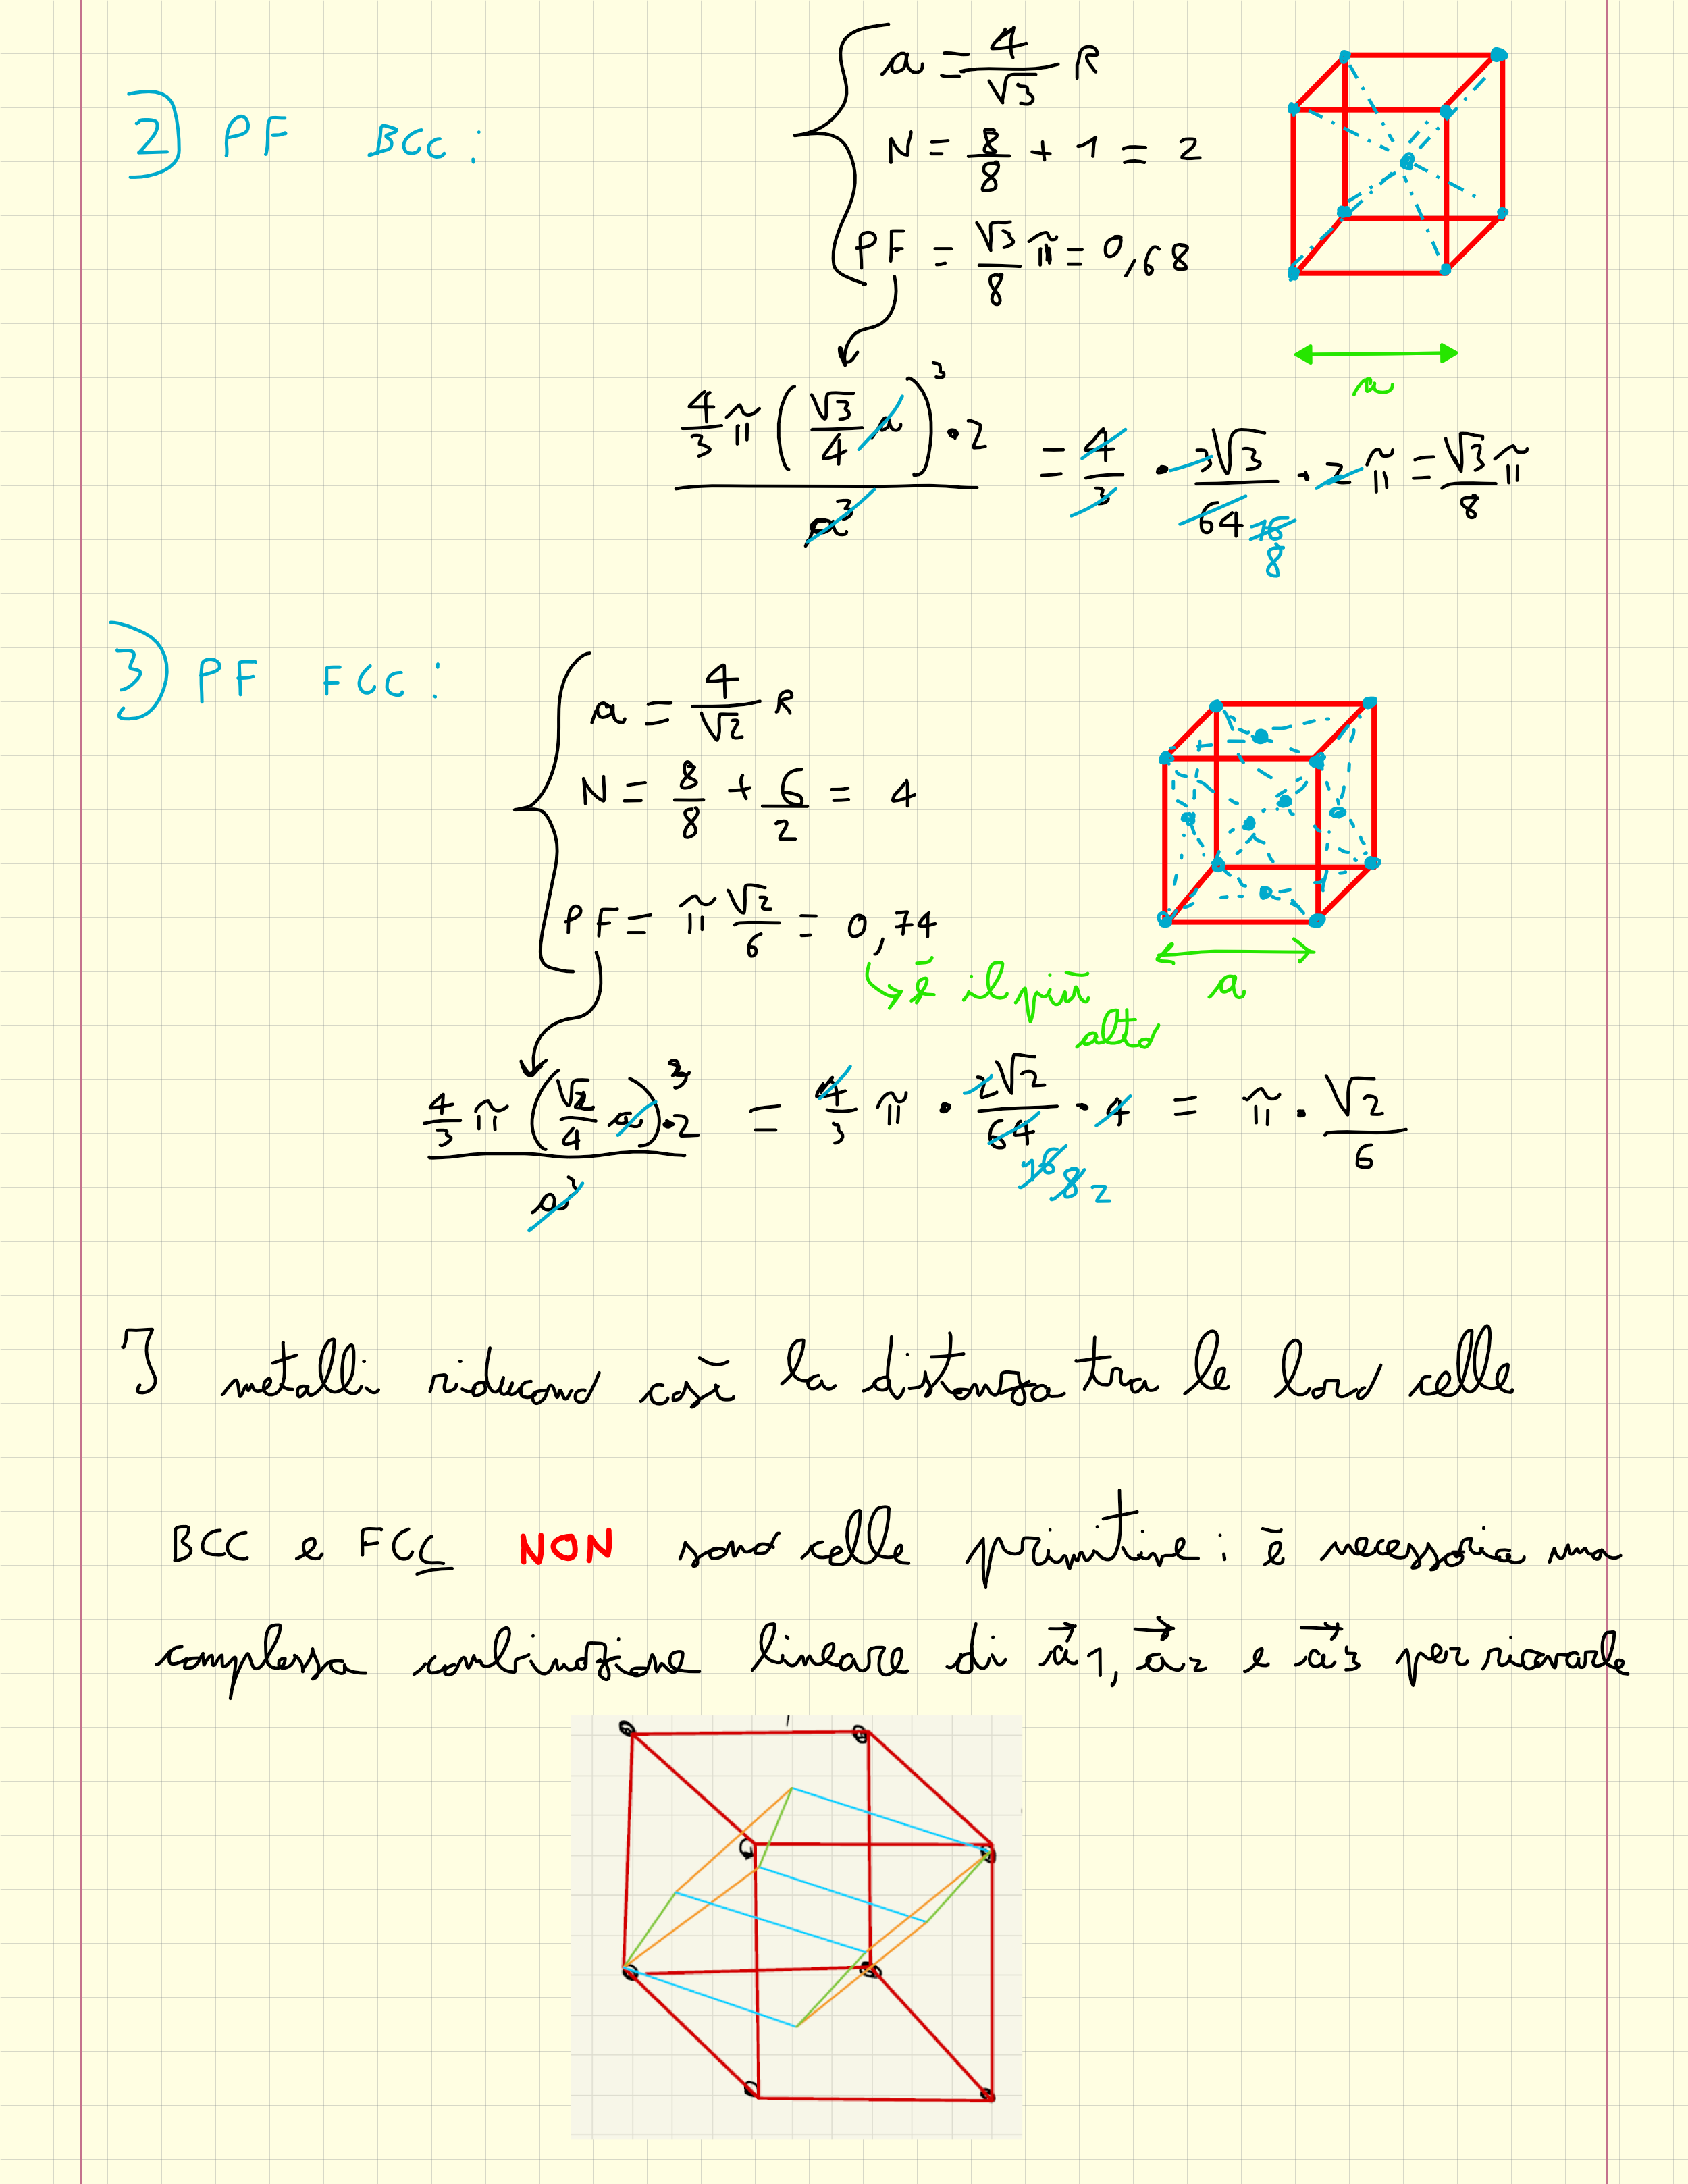 2) PF BCC:
a = 4/√3 R
N = 8/8 + 1 = 2
PF = √3/8 π = 0,68
a
4/3 π (√3/4 a)³ · 2 / a³ = 4/3 · 3√3/64 · 2 π = √3/8 π
16
8
3) PF FCC:
a = 4/√2 R
N = 8/8 + 6/2 = 4
PF = π √2/6 = 0,74
a
↳ è il più
alto
4/3 π (√2/4 a)³ · 2 / a³ = 4/3 π · 2√2/64 · 4 = π · √2/6
16 8 2
I metalli riducono così la distanza tra le loro celle
BCC e FCC NON sono celle primitive: è necessaria una
complessa combinazione lineare di a⃗1, a⃗2 e a⃗3 per ricavarle